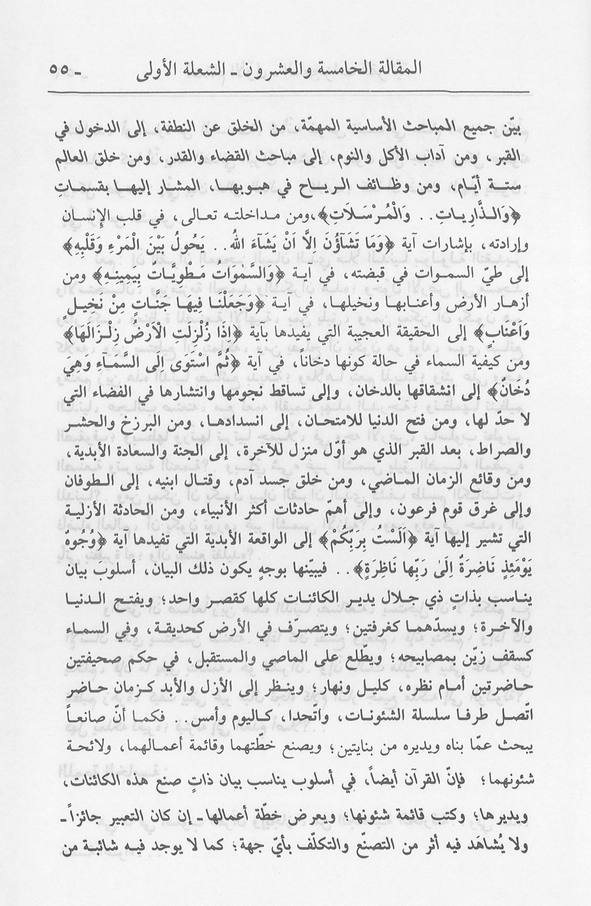 المقالة الخامسة والعشرون ـ الشعلة الأولى ـ ٥٥
يبيّن جميع المباحث الأساسية المهمّة، من الخلق عن النطفة، إلى الدخول في
القبر، ومن آداب الأكل والنوم، إلى مباحث القضاء والقدر، ومن خلق العالم
ستـة أيّـام، ومن وظـائف الريـاح في هبوبهـا، المشار إليهـا بقسمـاتِ
﴿وَالـذَّارِيـاتِ.. وَالْمُرْسَلَاتِ﴾،ومن مـداخلتـه تعـالى، في قلب الإنسـان
وإرادته، بإشارات آية ﴿وَمَا تَشَآؤُنَ اِلَّا اَنْ يَشَآءَ اللهُ.. يَحُولُ بَيْنَ الْمَرْءِ وَقَلْبِهِ﴾
إلى طيّ السمـوات في قبضته، في آيـة ﴿وَالسَّمٰوَاتُ مَطْوِيَّـاتٌ بِيَمِينِـهِ﴾ ومن
أزهـار الأرض وأعنابهـا ونخيلهـا، في آيـة ﴿وَجَعَلْنَـا فِيهَـا جَنَّـاتٍ مِنْ نَخِيـلٍ
وَاَعْنَابٍ﴾ إلى الحقيقة العجيبة التي يفيدها بآية ﴿اِذَا زُلْزِلَتِ الْاَرْضُ زِلْـزَالَهَا﴾
ومن كيفية السماء في حالة كونها دخاناً، في آية ﴿ثُمَّ اسْتَوَى اِلَى السَّمَـآءِ وَهِيَ
دُخَانٌ﴾ إلى انشقاقها بالدخان، وإلى تساقط نجومها وانتشارها في الفضاء التي
لا حدّ لها، ومن فتح الدنيا للامتحـان، إلى انسدادهـا، ومن البرزخ والحشـر
والصراط، بعد القبر الذي هو أوّل منزل للآخرة، إلى الجنة والسعادة الأبدية،
ومن وقايع الزمان المـاضي، ومن خلق جسد آدم، وقتـال ابنيه، إلى الطوفان
وإلى غرق قوم فرعون، وإلى أهمّ حادثات أكثر الأنبياء، ومن الحادثة الأزلية
التي تشير إليها آية ﴿اَلَسْتُ بِرَبِّكُمْ﴾ إلى الواقعة الأبدية التي تفيدها آية ﴿وُجُوهٌ
يَوْمَئِذٍ نَاضِرَةٌ اِلَى رَبِّهَا نَاظِرَةٌ﴾.. فيبيّنها بوجهٍ يكون ذلك البيان، أسلوبَ بيان
يناسب بذاتٍ ذي جلال يديـر الكائنـات كلها كقصـر واحد؛ ويفتـح الدنيـا
والآخـرة؛ ويسدّهمـا كغرفتين؛ ويتصـرّف في الأرض كحديقـة، وفي السماء
كسقف زيّن بمصابيحه؛ ويطّلع على الماضي والمستقبل، في حكم صحيفتين
حاضرتين أمـام نظره، كليـل ونهار؛ وينظـر إلى الأزل والأبد كـزمان حاضر
اتّصل طرفـا سلسلة الشئونـات، واتّحدا، كـاليوم وأمس.. فكمـا أنّ صانعـاً
يبحث عمّا بناه ويديره من بنايتين؛ ويصنع خطّتهما وقائمة أعمـالهما، ولائحـة
شئونهما؛ فإنّ القرآن أيضاً، في أسلوب يناسب بيان ذاتٍ صنع هذه الكائنات،
ويديرها؛ وكتب قائمة شئونها؛ ويعرض خطّة أعمالها ـ إن كان التعبير جائزاً ـ
ولا يُشاهَد فيه أثر من التصنّع والتكلّف بأيّ جهة؛ كما لا يوجد فيـه شائبة من